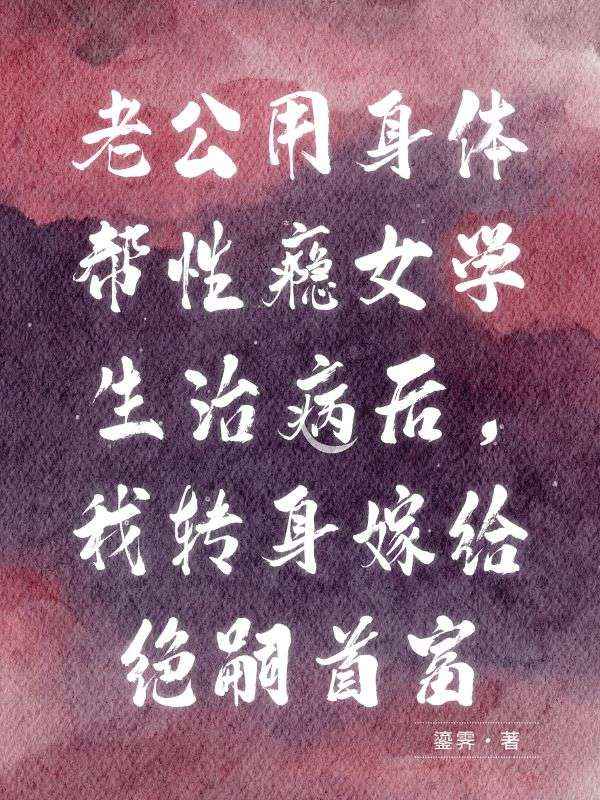 老公用身体
帮性瘾女学
生治病后，
我转身嫁给
绝嗣首富
鎏霁·著